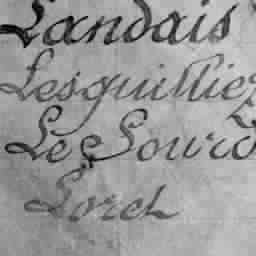 Landais
Lesguillier
Le Sourd
Lorch